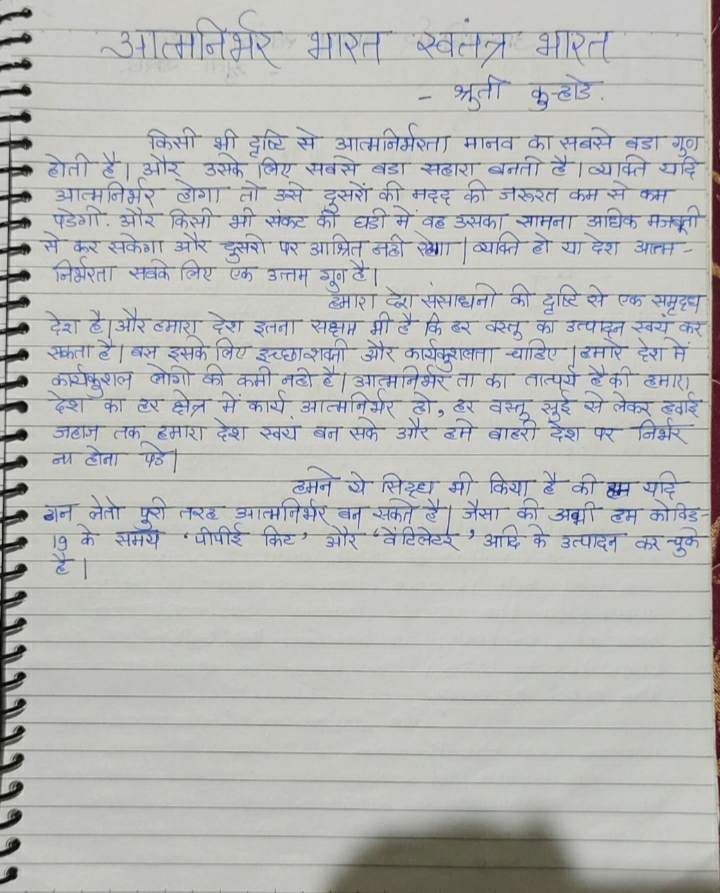 आत्मनिर्भर भारत स्वतंत्र भारत
- श्रुती कुऱ्हाडे.
किसी भी दृष्टि से आत्मनिर्भरता मानव का सबसे बडा गुण
होती है। और उसके लिए सबसे बडा सहारा बनती है। व्यक्ति यदि
आत्मनिर्भर होगा तो उसे दुसरों की मदद की जरूरत कम से कम
पडेगी. और किसी भी संकट की घडी में वह उसका सामना अधिक मजबूती
से कर सकेगा और दुसरो पर आश्रित नही रहेगा। व्यक्ति हो या देश आत्म-
निर्भरता सबके लिए एक उत्तम गुन है।
हमारा देश संसाधनो की दृष्टि से एक समृद्ध
देश है। और हमारा देश इतना सक्षम भी है कि हर वस्तु का उत्पादन स्वय कर
सकता है। बस इसके लिए इच्छाशक्ती और कार्यकुशलता चाहिए। हमारे देश में
कार्यकुशल लोगो की कमी नही है। आत्मनिर्भर ता का तात्पर्य है की हमारा
देश का हर क्षेत्र में कार्य आत्मनिर्भर हो, हर वस्तू सुई से लेकर हवाई
जहाज तक हमारा देश स्वय बन सके और हमे बाहरी देश पर निर्भर
ना होना पडे।
हमने ये सिद्ध भी किया है की हम यदि
ठान लेतो पुरी तरह आत्मनिर्भर बन सकते है। जैसा की अभी हम कोविड-
19 के समय 'पीपीई किट' और 'वेंटिलेटर' आदि के उत्पादन कर चुके
है।